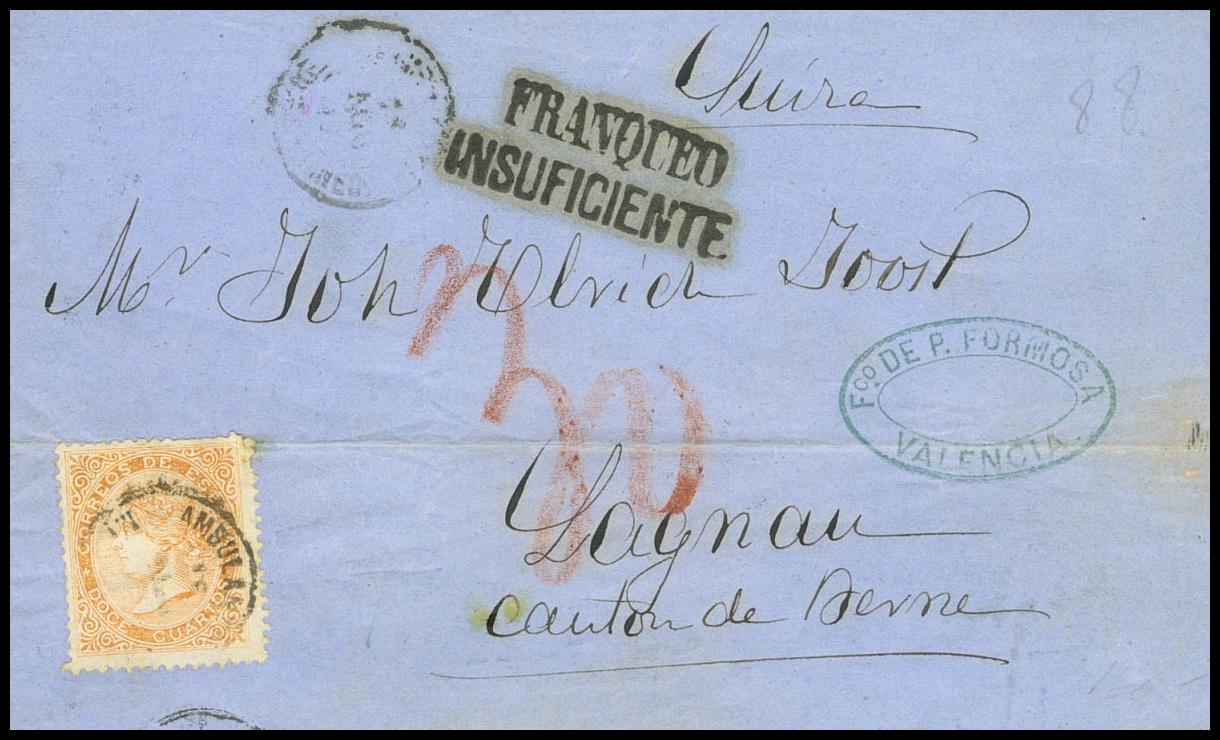 Suiza
88.
FRANQUEO
INSUFICIENTE
Mr. Joh Ulrich Joost
Fco. DE P. FORMOSA
VALENCIA.
30
Lagnau
canton de Berne
CORREOS DE ESP
AMBULAN
DOCE CUARTOS